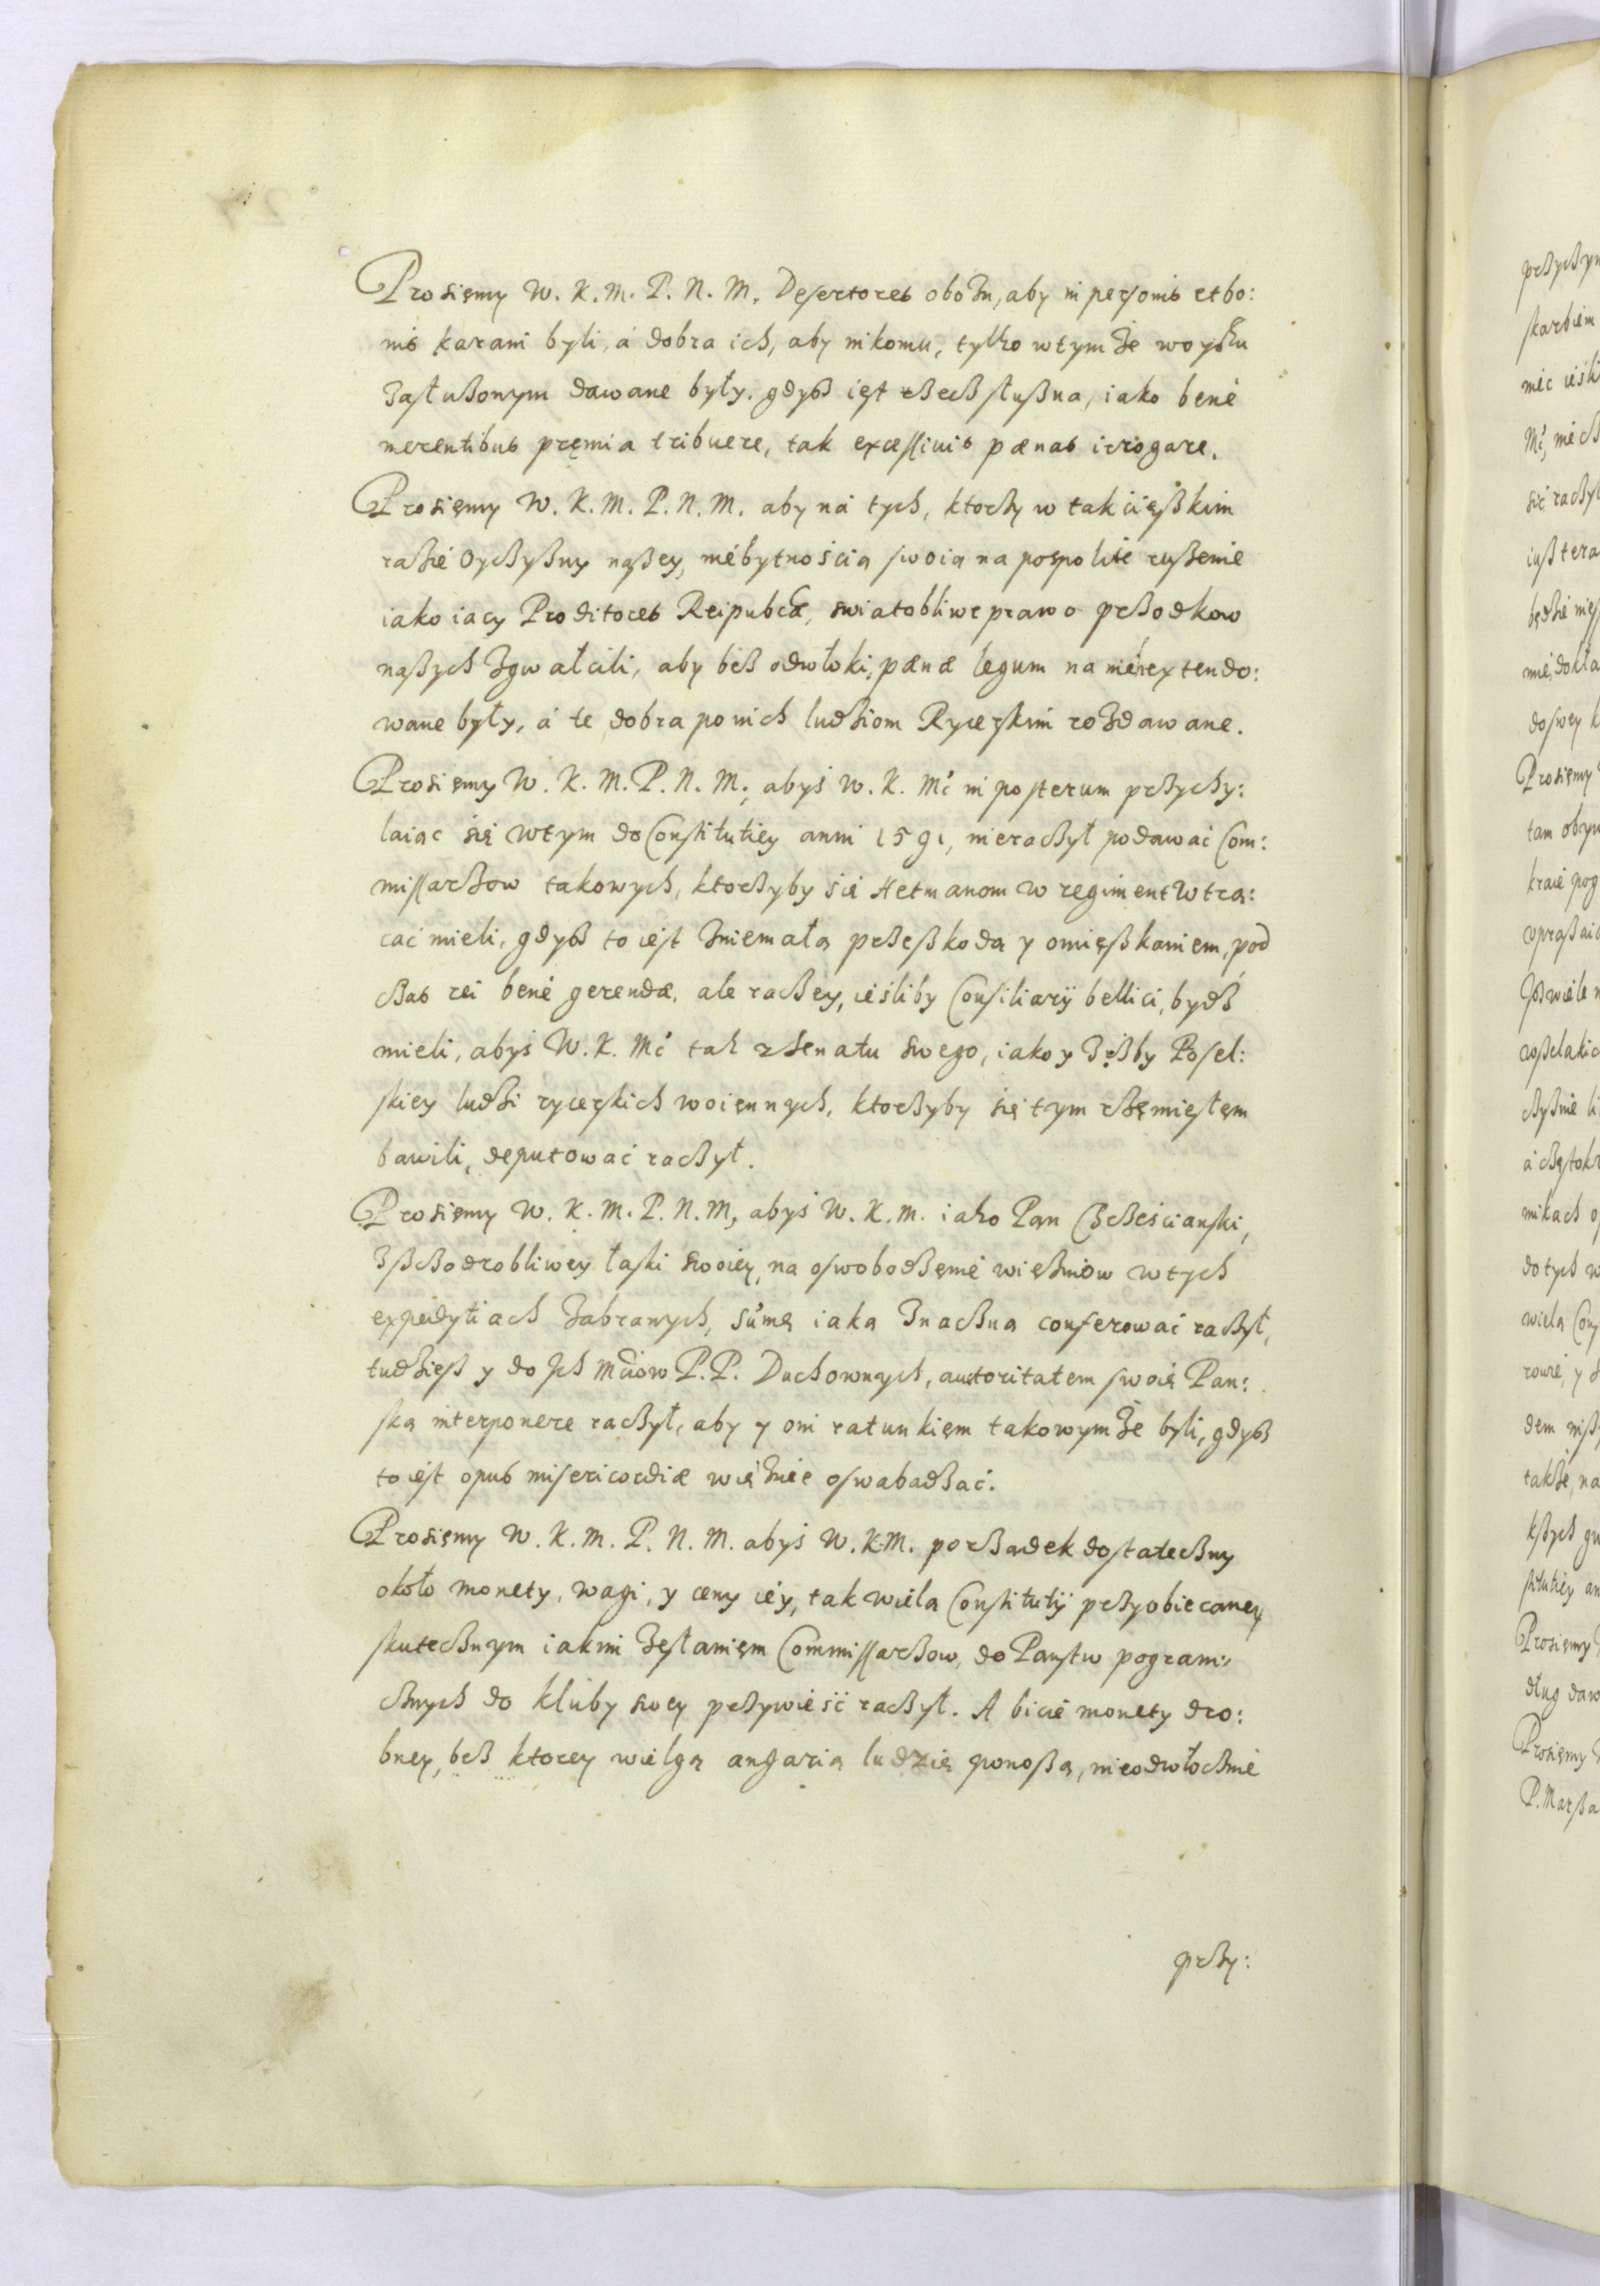 Prosięmy W. K. M. P. N. M. Desertores obozu, aby in personis et bo:
nis karani byli, á dobra ich, aby nikomu, tylko w tymże woysku
zasłużonym dawane były. gdysz iest rzecz słuszna, iako bené
merentibus pręmia tribuere, tak excessiuis pænas irrogare.
Prosięmy W. K. M. P. N. M. aby ná tych, ktorzy w tak ciężkim
razie Oyczyzny naszey, niebytnością swoią na pospolite ruszenie
iako iacy Proditores Reipubcæ, swiatobliwe prawo przodkow
naszych zgwałcili, aby bez odwłoki, pænæ legum na nie extendo:
wane były, á te dobra po nich ludziom Rycerskim rozdawane.
Prosięmy W. K. M. P. N. M., abyś W. K. Mć in posterum przychy:
laiąc się w tym do Constitutiey anni 1591, nieraczył podawać Com:
missarzow takowych, ktorzyby się Hetmanom w regiment wtrą:
cać mieli, gdysz to iest zniemałą przeszkodą y omięszkaniem, pod
czas rei bené gerendæ, ale raczey, ieśliby Consiliarij bellici, bydz
mieli, abyś W. K. Mć tak z Senatu swego, iako y Izby Posel:
skiey ludzi rycerskich woiennych, ktorzyby się tym rzemięsłem
bawili, deputować raczył.
Prosięmy W. K. M. P. N. M, abyś W. K. M. iako Pan Chrześcianski,
z szczodrobliwey łaski swoiey, na oswobodzęnie więzniow w tych
expeditiach zabranych, sumę iaką znaczną conferować raczył,
tudziesz y do Ich Mciow P.P. Duchownych, autoritatem swoię Pan:
ską interponere raczył, aby y oni ratunkięm takowymże byli, gdysz
to iest opus misericordiæ więznie oswabadzać.
Prosięmy W. K. M. P. N. M. abyś W. K. M. porządek dostateczny
około monety, wagi, y ceny iey, tak wielą Constitutij przyobiecaney
skutecznym iakim zesłanięm Commissarzow, do Panstw pograni:
cznych do kluby swey przywieść raczył. A bicie monety dro:
bney, bez ktorey wielgą angarią ludzie ponoszą, nieodwłocznie
przy: